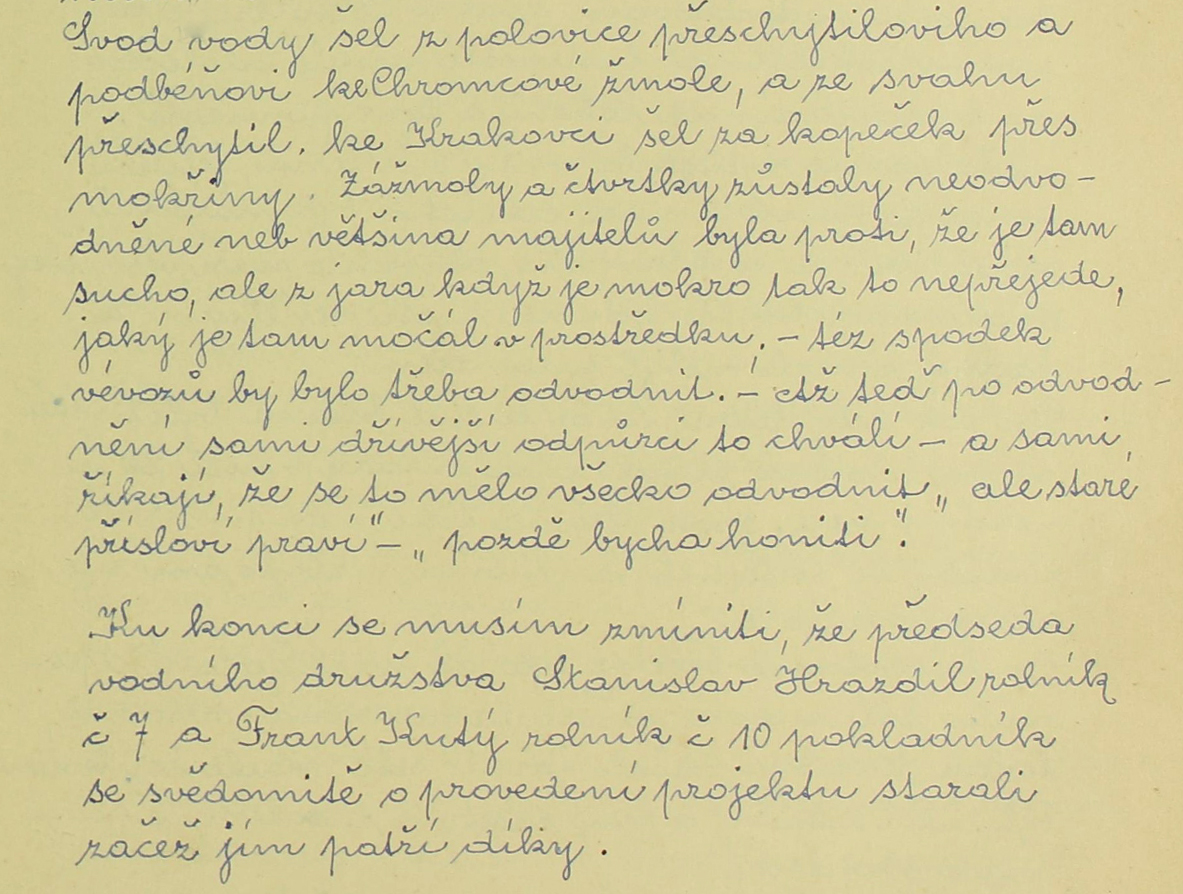 Svod vody šel z polovice přeschytiloviho a
podběňovi ke Chromcové žmole, a ze svahu
přeschytil. ke Krakovci šel za kopeček přes
mokřiny. Zážmoly a čtvrtky zůstaly neodvo-
dněné neb většina majitelů byla proti, že je tam
sucho, ale z jara když je mokro tak to nepřejede,
jaký je tam močál v prostředku. - téz spodek
vévozů by bylo třeba odvodnit. - Až teď po odvod-
nění sami dřívější odpůrci to chválí - a sami
říkají, že se to mělo všecko odvodnit „ ale staré
přísloví praví" - „ pozdě bycha honiti".
Ku konci se musím zmíniti, že předseda
vodního družstva Stanislav Hrazdil rolník
č 7 a Frant Kutý rolník č 10 pokladník
se svědomitě o provedení projektu starali
začež jím patří díky.